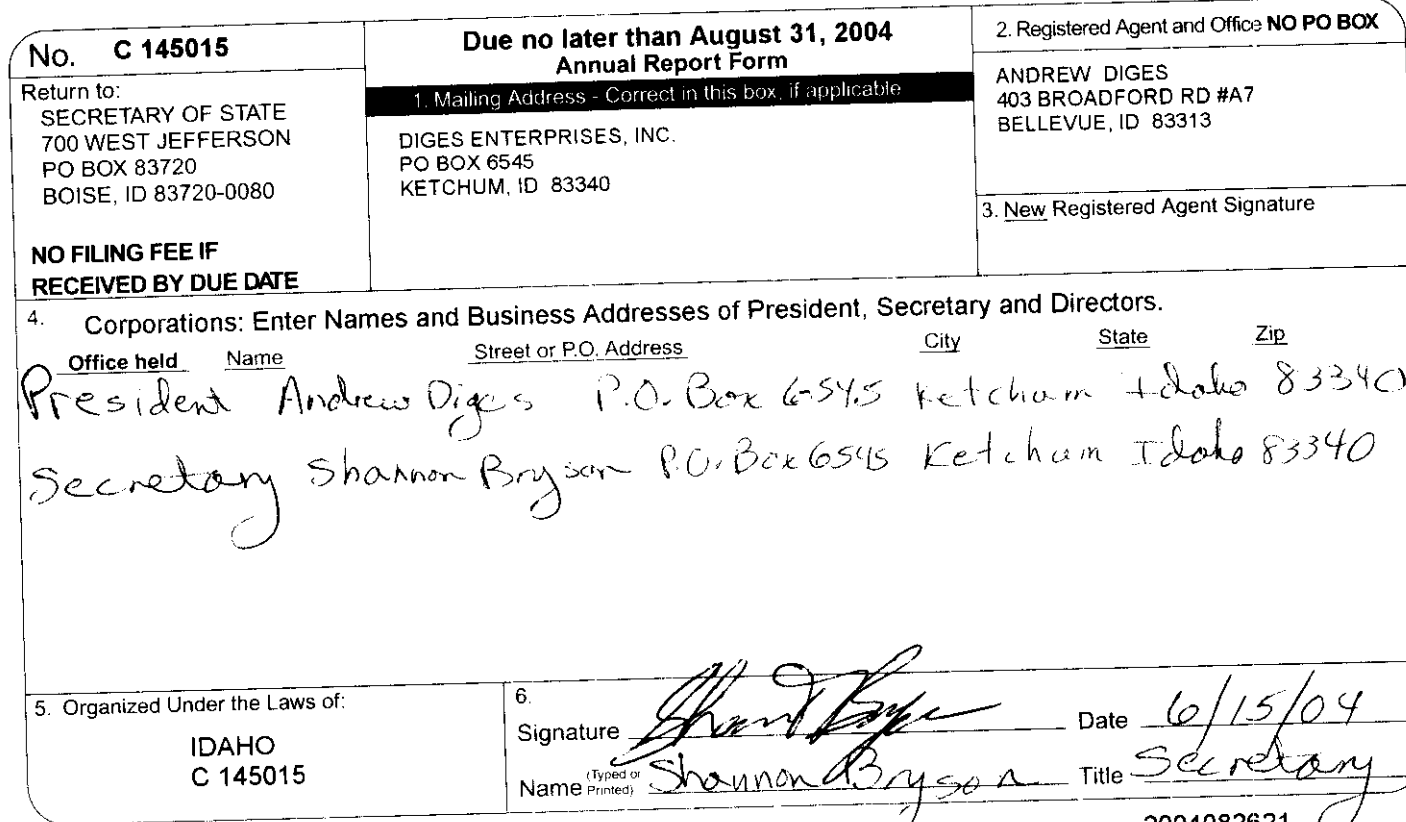 No. C 145015
Return to:
SECRETARY OF STATE
700 WEST JEFFERSON
PO BOX 83720
BOISE, ID 83720-0080
NO FILING FEE IF
RECEIVED BY DUE DATE
Due no later than August 31, 2004
Annual Report Form
1. Mailing Address - Correct in this box, if applicable
DIGES ENTERPRISES, INC.
PO BOX 6545
KETCHUM, ID 83340
2. Registered Agent and Office NO PO BOX
ANDREW DIGES
403 BROADFORD RD #A7
BELLEVUE, ID 83313
3. New Registered Agent Signature
4. Corporations: Enter Names and Business Addresses of President, Secretary and Directors.
Office held Name Street or P.O. Address City State Zip
President Andrew Diges P.O. Box 6545 Ketchum Idaho 83340
Secretary Shannon Bryson P.O. Box 6545 Ketchum Idaho 83340
5. Organized Under the Laws of:
IDAHO
C 145015
6.
Signature Date 6/15/04
Name (Typed or Printed) Shannon Bryson Title Secretary
2004082621